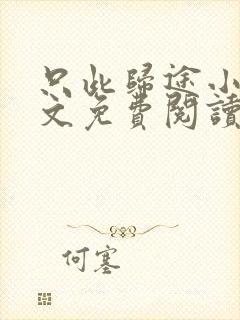 只此歸途小
文免費閱讀
何塞